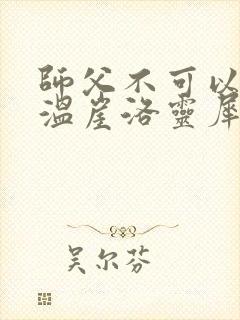 師父不可以
溫崖洛靈犀
吴尔芬